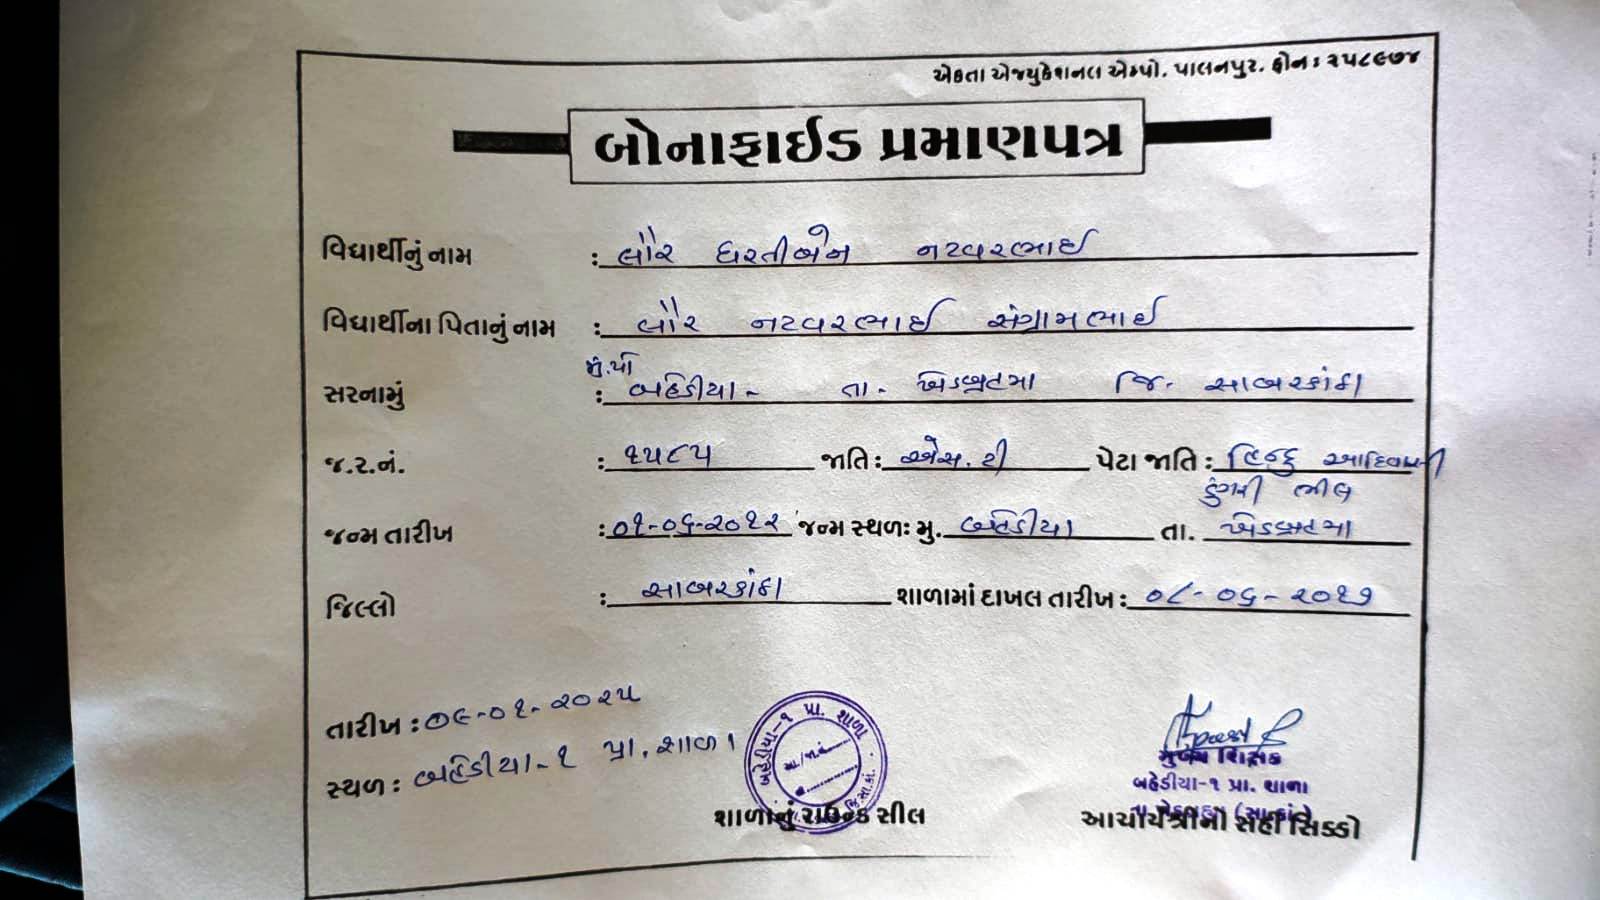 એકતા એજ્યુકેશનલ એમ્પો. પાલનપુર. ફોન : ૨૫૮૯૭૪
બોનાફાઈડ પ્રમાણપત્ર
વિદ્યાર્થીનું નામ : ધરતીબેન નટવરભાઈ
વિદ્યાર્થીના પિતાનું નામ : નટવરભાઈ સંગ્રામભાઈ
મું.પો
સરનામું : બહેડીયા - તા - ખેડબ્રહ્મા જિ. સાબરકાંઠા
જ.ર.નં. : ૧૫૮૫ જાતિ : એસ.ટી પેટા જાતિ : હિન્દુ આદિવાસી
ડુંગરી ભીલ
જન્મ તારીખ : ૦૧-૦૬-૨૦૧૨ જન્મ સ્થળઃ મુ. બહેડીયા તા. ખેડબ્રહ્મા
જિલ્લો : સાબરકાંઠા શાળામાં દાખલ તારીખ : ૦૮-૦૬-૨૦૧૭
તારીખ : ૦૯-૦૧-૨૦૨૫
સ્થળ : બહેડીયા-૧ પ્રા. શાળા
બહેડીયા-૧ પ્રા. શાળા
જિ.સા.કાં.
મુખ્ય શિક્ષક
બહેડીયા-૧ પ્રા. શાળા
શાળાનું રાઉન્ડ સીલ
આચાર્યશ્રીની સહી સિક્કો